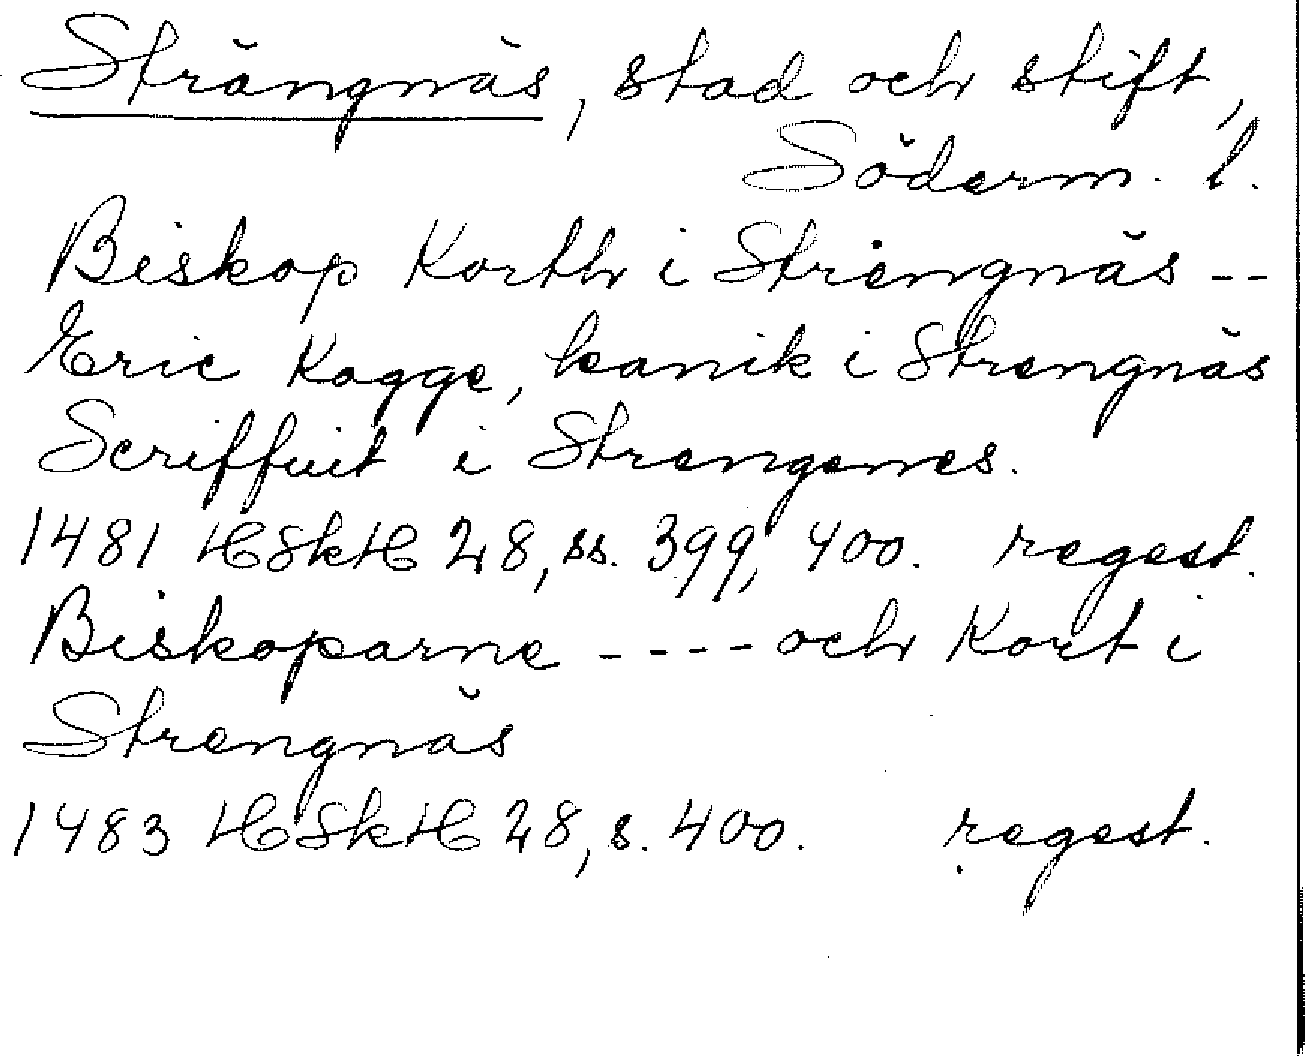 Strängnäs, stad och stift,
Söderm. l.
Biskop Korth i Strengnäs --
Eric Kagge, kanik i Strengnäs
Scriffuit i Strengenes.
1481 HSkH 28, ss. 399, 400. regest.
Biskoparne ---- och Kort i
Strengnäs
1483 HSkH 28, s. 400. regest.